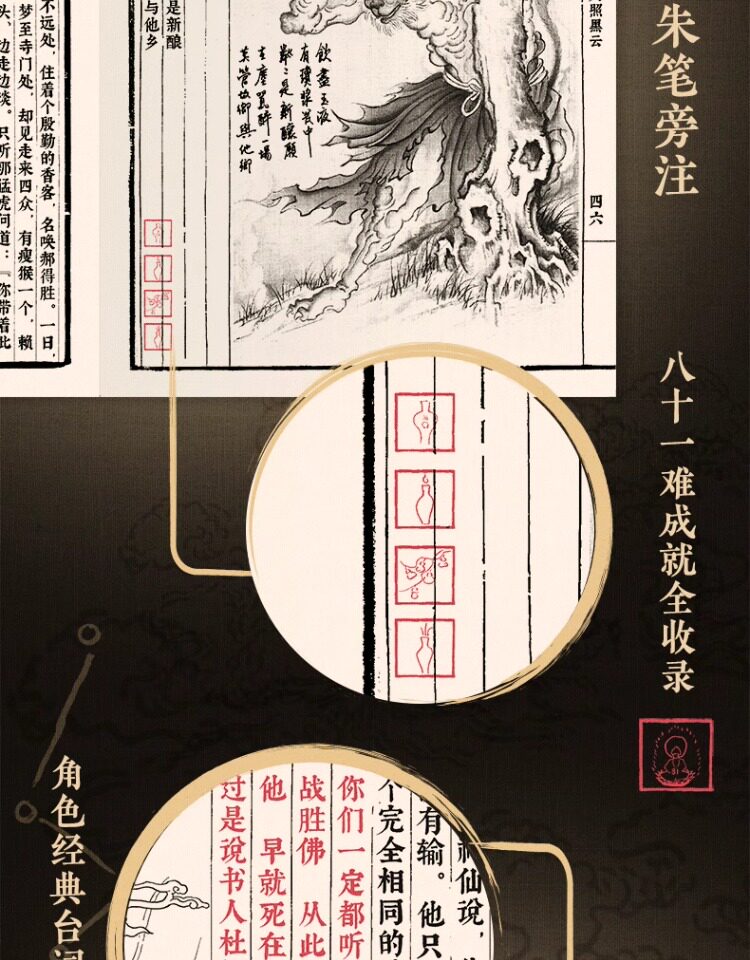 朱笔旁注
照黑云
四六
飲盡玉液
有瓊漿
是新釀願
醉一場
莫管故鄉與他鄉
是新酿
与他乡
不远处，住着个殷勤的香客，名唤郝得胜。一日，
梦至寺门处，却见走来四众，有瘦猴一个，赖
头、边走边谈。只听那猛虎问道：『你带着此
八十一难成就全收录
角色经典台词
神仙说，
有输。他只
个完全相同的
你们一定都听
战胜佛 从此
他 早就死在
过是说书人杜